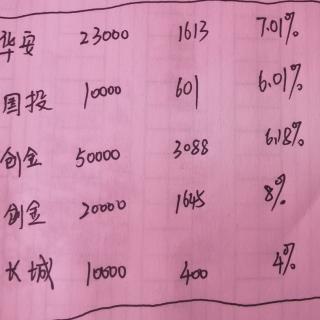 华安 23000 1613 7.01%
国投 10000 601 6.01%
创金 50000 3088 6.18%
创金 20000 1645 8%
长城 10000 400 4%